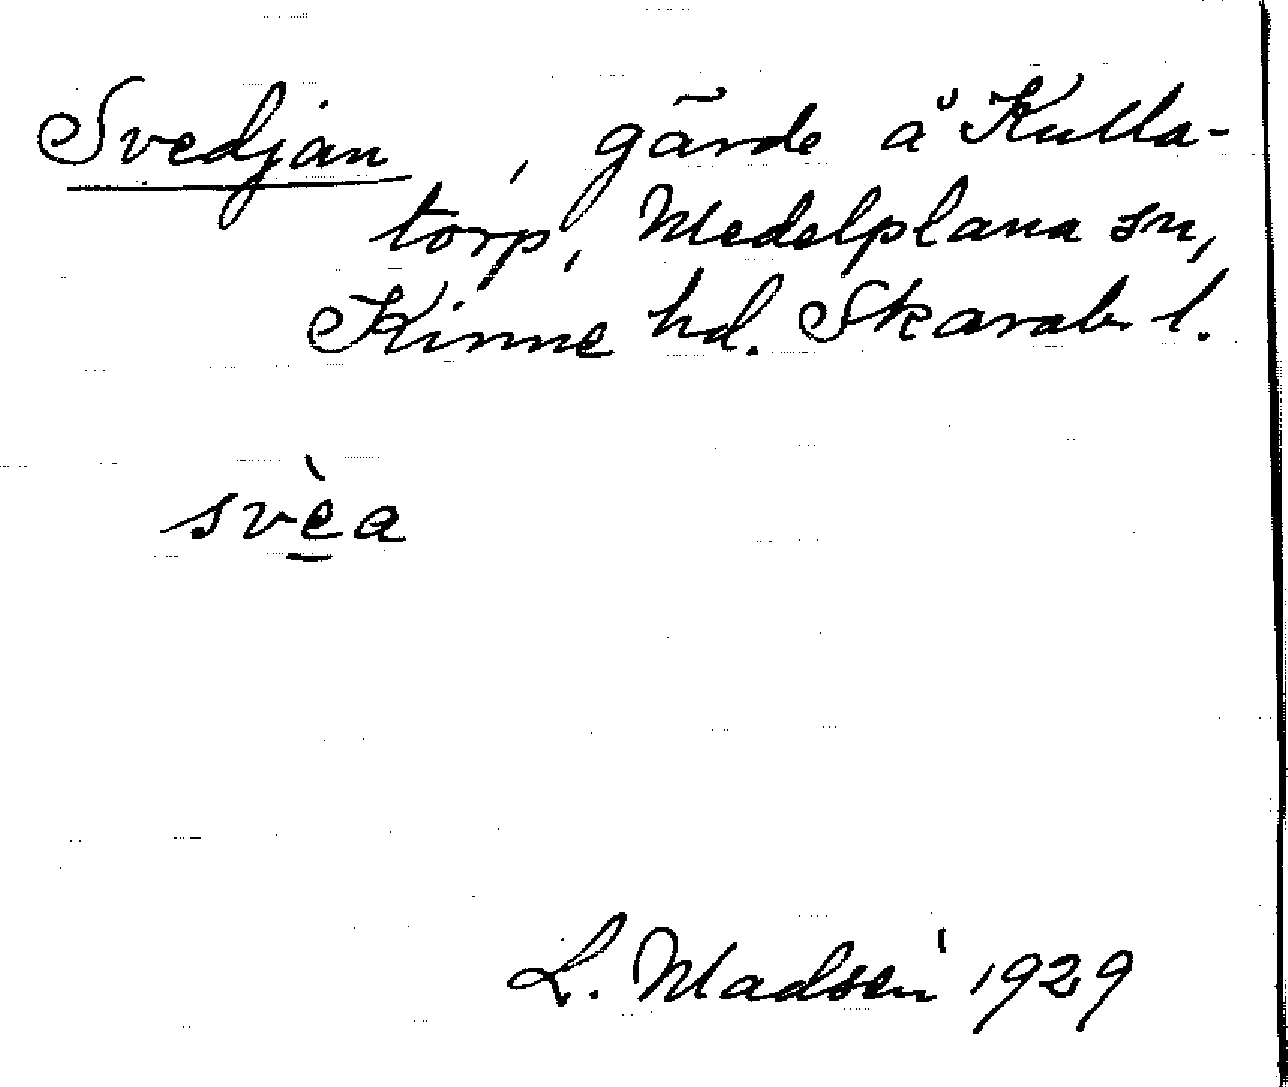 Svedjan, gärde å Kulla-
torp, Medelplana sn,
Kinne hd. Skarab. l.
svèa
L. Madsén 1929